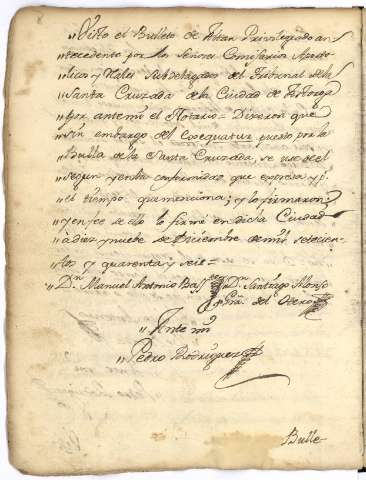 Visto el Bulleto de Altar Privilegiado an-
"tecedente por los Señores Comisarios Aposto-
"licos y Reales Subdelegados del Tribunal de la
"Santa Cruzada de la Ciudad de Astorga
"por ante mi el Notario = Dixeron que
"sin embargo del exequatur puesto por la
"Bulla de la Santa Cruzada, se use de el
"segun y en la conformidad que expresa y p.r
"el tiempo que menciona; y lo firmaron
"y en fee de ello lo firmé en dicha Ciudad
"à diez y nuebe de Diciembre de mil setecien-
"tos y quarenta y seis =
"D.n Manuel Antonio D.n Santiago Alonso
del Otero
"Ante mi
"Pedro Rodriguez
Bulle-